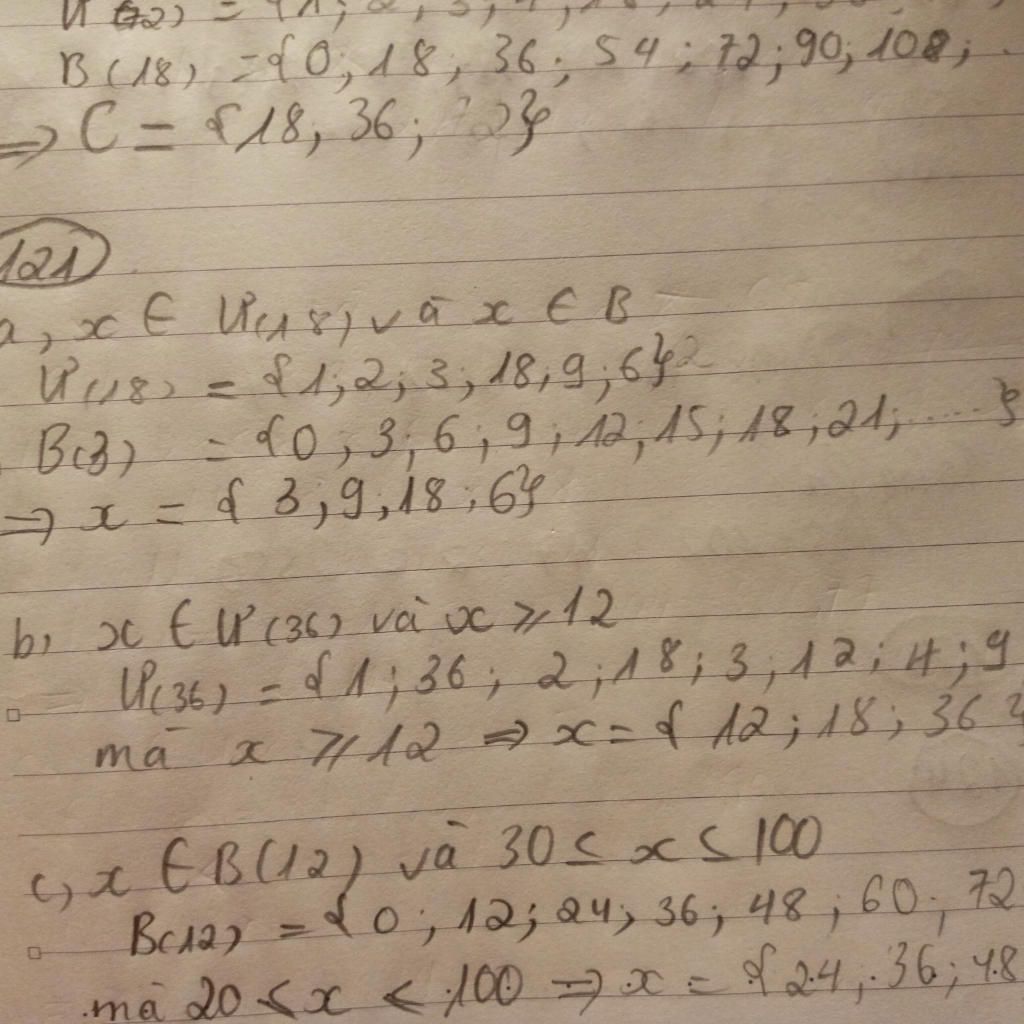 B(18) = {0; 18; 36; 54; 72; 90; 108;
=> C = {18, 36; }
121
a, x ∈ Ư(18) và x ∈ B
Ư(18) = {1; 2; 3; 18; 9; 6}
B(3) = {0; 3; 6; 9; 12; 15; 18; 21; .... }
=> x = { 3; 9; 18; 6}
b, x ∈ Ư(36) và x ⩾ 12
Ư(36) = {1; 36; 2; 18; 3; 12; 4; 9
mà x ⩾ 12 => x = { 12; 18; 36 }
c, x ∈ B(12) và 30 ≤ x ≤ 100
B(12) = {0; 12; 24; 36; 48; 60; 72
mà 20 ≤ x < 100 => x = {24, 36; 48